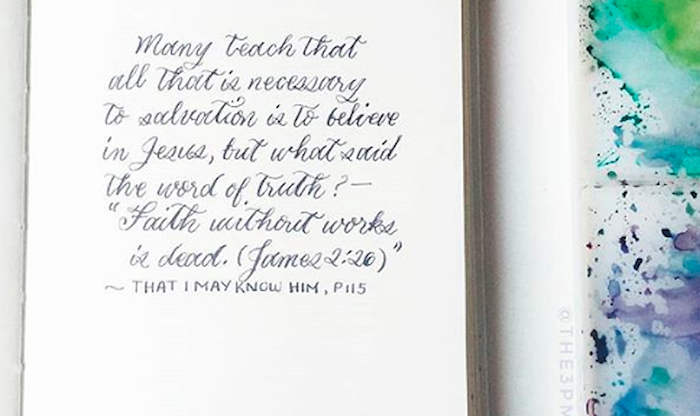 Many teach that
all that is necessary
to salvation is to believe
in Jesus, but what said
the word of truth? —
"Faith without works
is dead. (James 2:26)"
~ THAT I MAY KNOW HIM, P115
@THE3PM